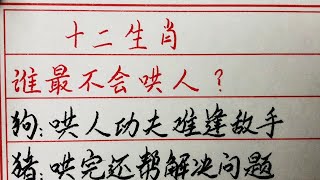 十二生肖
谁最不会哄人?
狗:哄人功夫难逢敌手
猪:哄完还帮解决问题